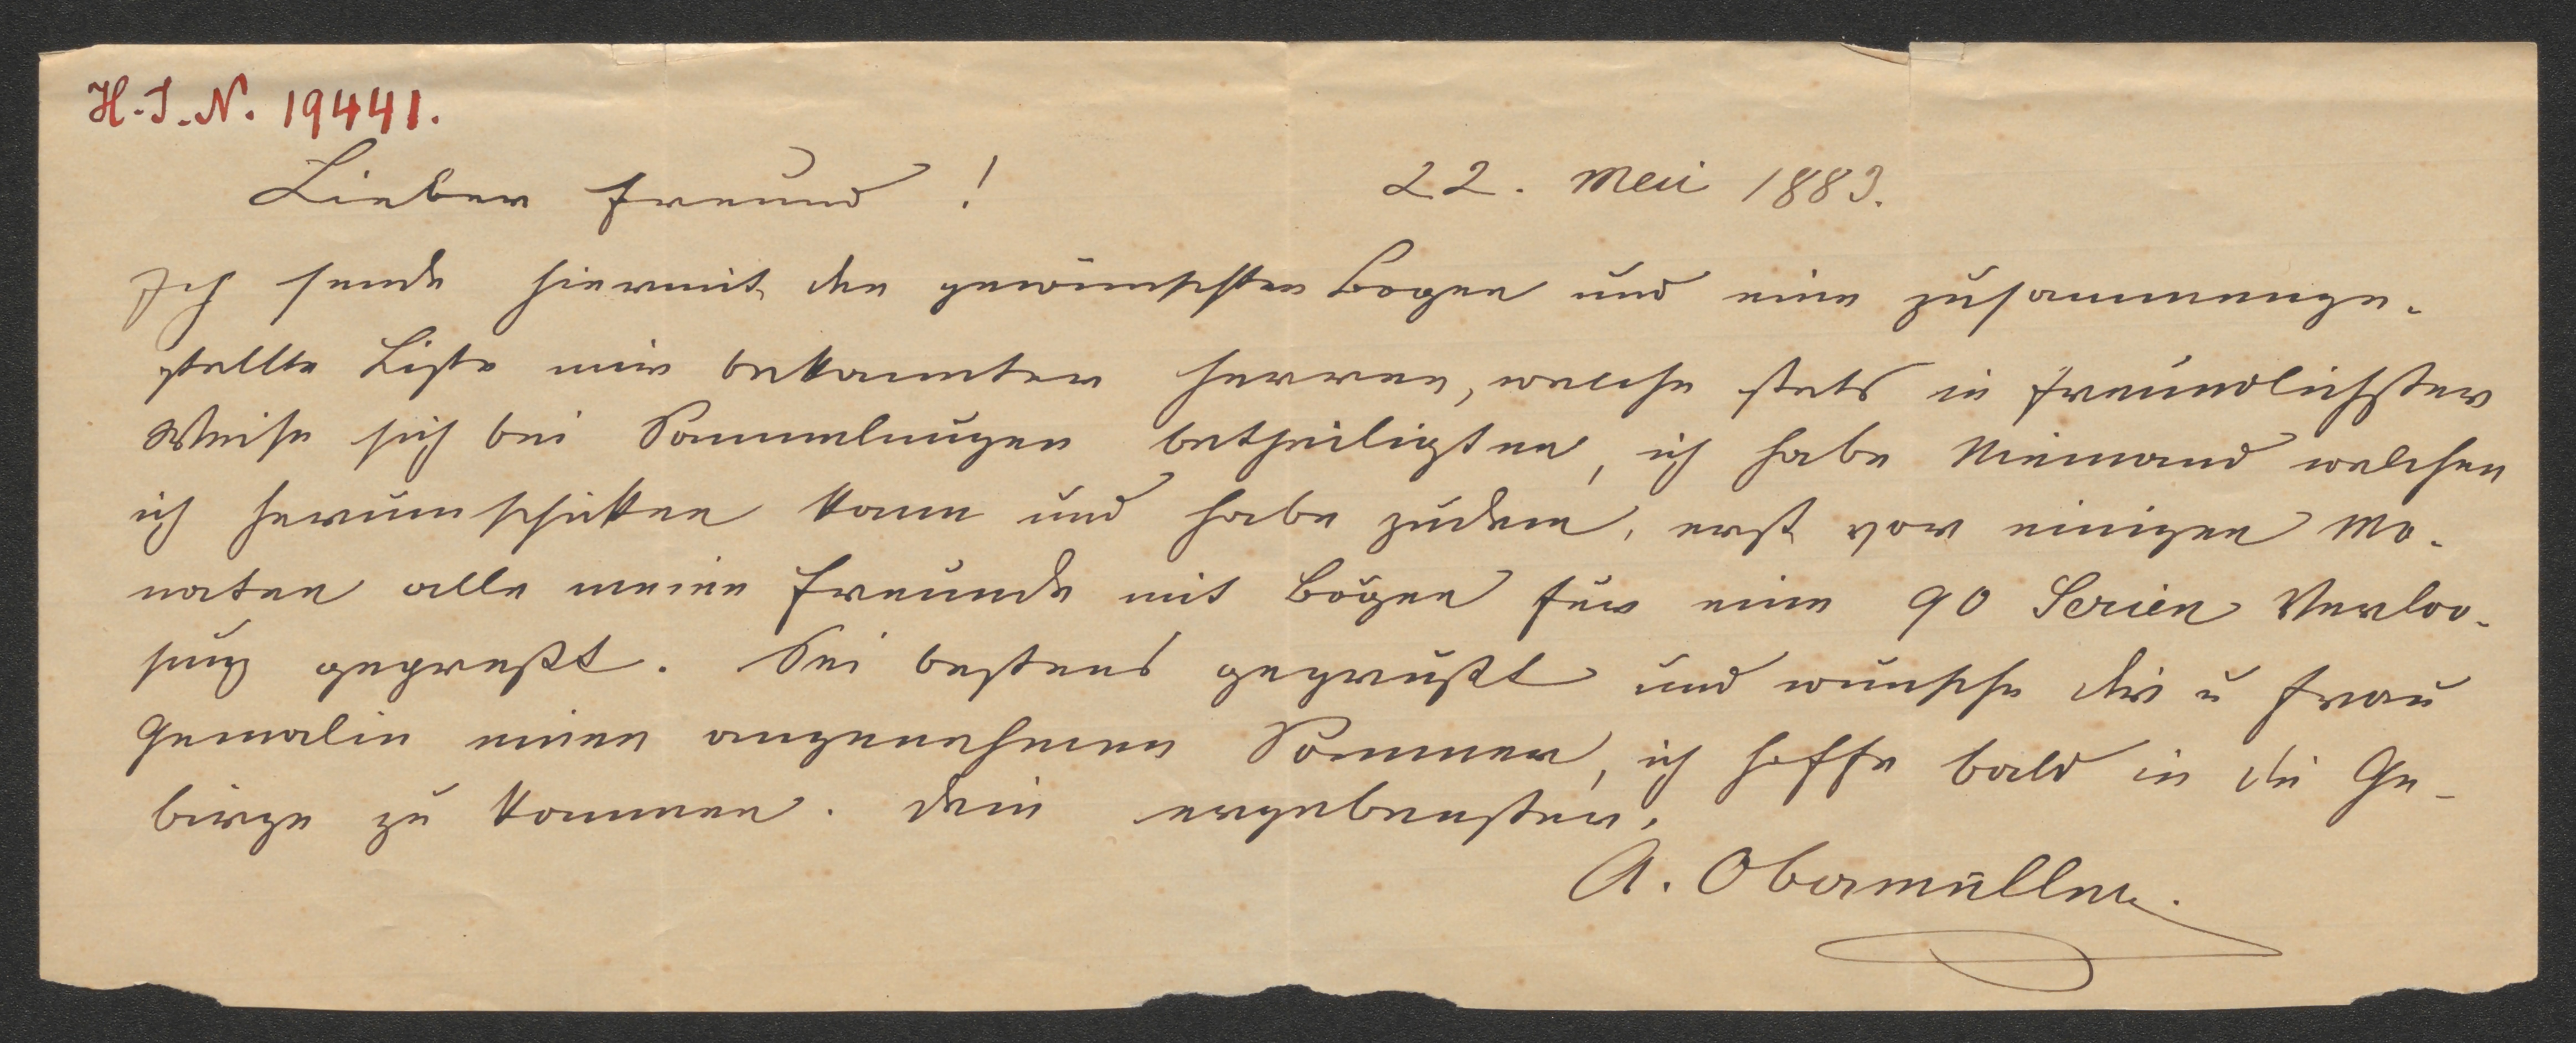 H.I.N. 19441.
Lieber Freund! 22. Mai 1883.
Ich sende hiermit den gewünschten Bogen und eine zusammenge-
stellte Liste mir bekannter Herren, welche stets in freundlichster
Weise sich bei Sammlungen betheiligten, ich habe Niemand welchen
ich herumschikken kann und habe zudem, erst vor einigen Mo-
naten alle meine Freunde mit Bögen für eine 90 Serien Verloo-
sung gepreßt. Sei bestens gegrüßt und wünsche dir u Frau
Gemalin einen angenehmen Sommer, ich hoffe bald in die Ge-
birge zu kommen. Dein ergebenster,
A. Obermüllner.